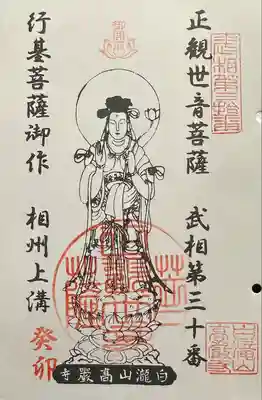 正観世音菩薩 武相第三十番
行基菩薩御作 相州上溝
癸卯
白瀧山髙巌寺